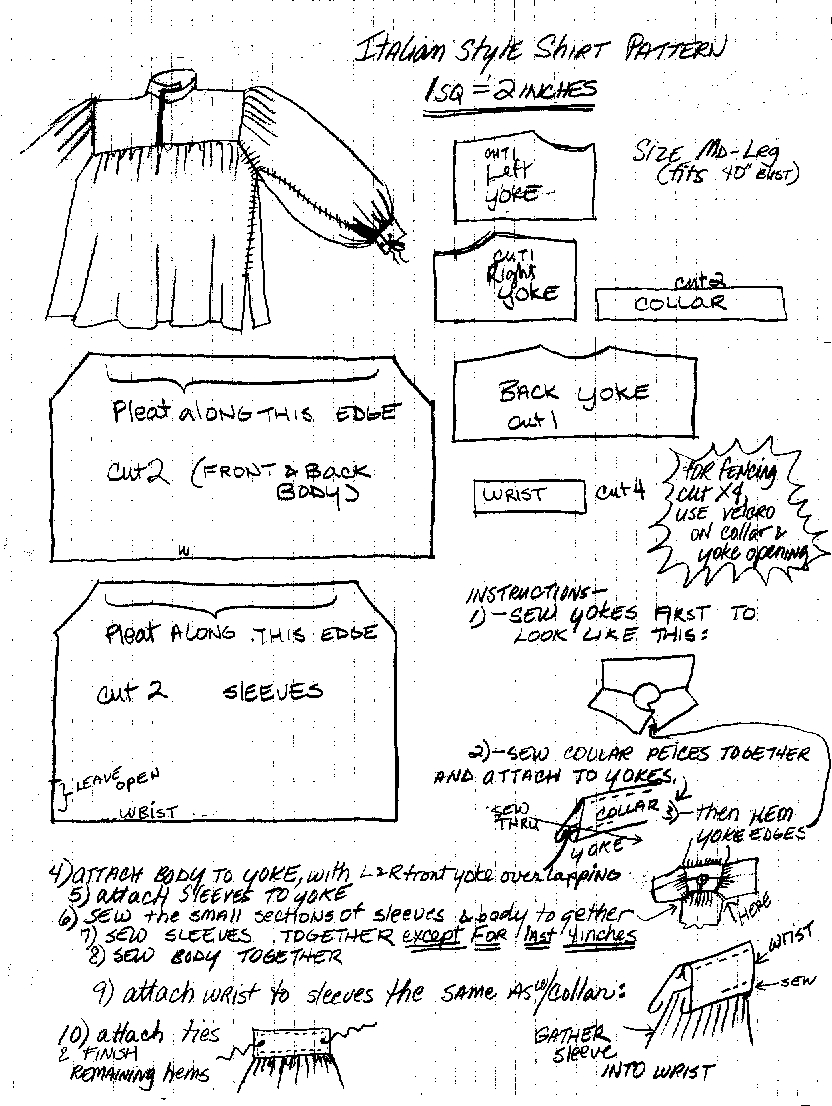 Italian Style Shirt Pattern
1 SQ = 2 INCHES
Size MD-Leg
(fits 40" BUST)
CUT 1
Left
YOKE
CUT 1
Right
YOKE
cut 2
COLLAR
Pleat alONG THIS EDGE
CUT 2 (FRONT & BACK
BODY)
BACK YOKE
CUT 1
WRIST
cut 4
FOR FENCING
CUT X4,
USE VELCRO
ON COLLAR &
YOKE OPENING
Pleat ALONG THIS EDGE
CUT 2 SLEEVES
LEAVE OPEN
WRIST
INSTRUCTIONS-
1)-SEW YOKES FIRST TO
LOOK LIKE THIS:
2)-SEW COLLAR PEICES TOGETHER
AND ATTACH TO YOKES.
SEW
THRU
COLLAR
YOKE
3)-then HEM
YOKE EDGES
4) ATTACH BODY TO YOKE, with L & R front yoke overlapping
5) attach SLEEVES TO YOKE
6) SEW the small sections of sleeves & body to gether
HERE
7) SEW SLEEVES TOGETHER except FOR last 4 inches
8) SEW BODY TOGETHER
9) attach WRIST to sleeves the SAME AS w/collar:
WRIST
SEW
GATHER
Sleeve
INTO WRIST
10) attach ties
& FINISH
REMAINING hems